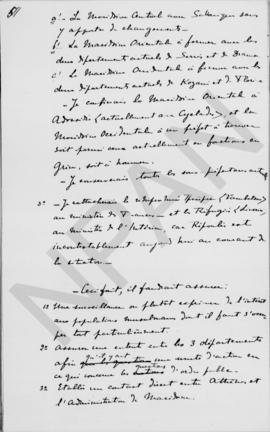 a/- La Macédoine Centrale avec Salonique sans
y apporter de changements.
b/ La Macédoine Orientale à former avec les
deux départements actuels de Serrès et de Drama
c/ La Macédoine Occidentale à former avec les
deux départements actuels de Kozani et de Florina
- Je confierais la Macédoine Orientale à
Adossidès (actuellement aux Cyclades), et la
Macédoine Occidentale à un préfet à trouver
soit parmi ceux actuellement en fonctions en
Grèce, soit à nommer.
- Je conserverais toutes les sous préfectures
3°
au ministre de et les Réfugiés
au ministre de l'Intérieur, car Ripoulis est
incontestablement aujourd'hui au courant de
la situation.
- Ceci fait, il faudrait assurer:
1° Une surveillance ou plutôt exprimer de l'intérêt
aux populations musulmanes dont il faut s'occuper
tout particulièrement.
2° Assurer une entente entre les 3 départements
afin qu'il y ait une unité d'action en
ce qui concerne les questions d'ordre public.
3° Etablir un contact direct entre Athènes et
l'Administration de Macédoine.